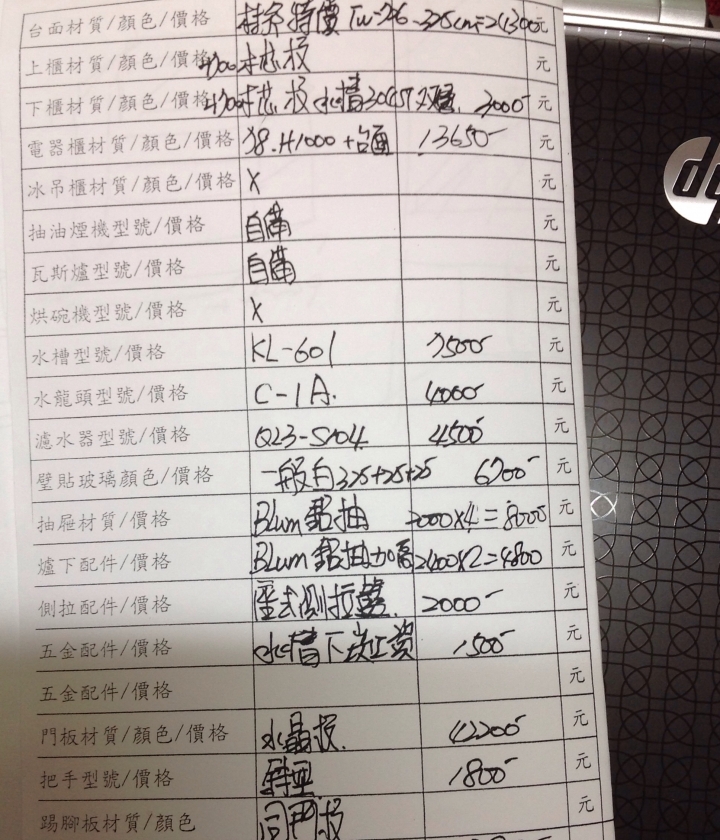 台面材質/顏色/價格 特價 元
上櫃材質/顏色/價格 木芯板 元
下櫃材質/顏色/價格 木芯板 水槽304ST 3000 元
電器櫃材質/顏色/價格 H1000+台面 13650 元
冰吊櫃材質/顏色/價格 X 元
抽油煙機型號/價格 自備 元
瓦斯爐型號/價格 自備 元
烘碗機型號/價格 X 元
水槽型號/價格 KL-601 7500 元
水龍頭型號/價格 C-1A. 4000 元
濾水器型號/價格 Q23-S104 4500 元
壁貼玻璃顏色/價格 一般白325+25+25 6700 元
抽屜材質/價格 Blum鋁抽 2000X4=8000 元
爐下配件/價格 Blum鋁抽加高 2400X2=4800 元
側拉配件/價格 側拉籃 2000 元
五金配件/價格 水槽下 費 1500 元
五金配件/價格 元
門板材質/顏色/價格 水晶板. 42200 元
把手型號/價格 1800 元
踢腳板材質/顏色 同門板 元